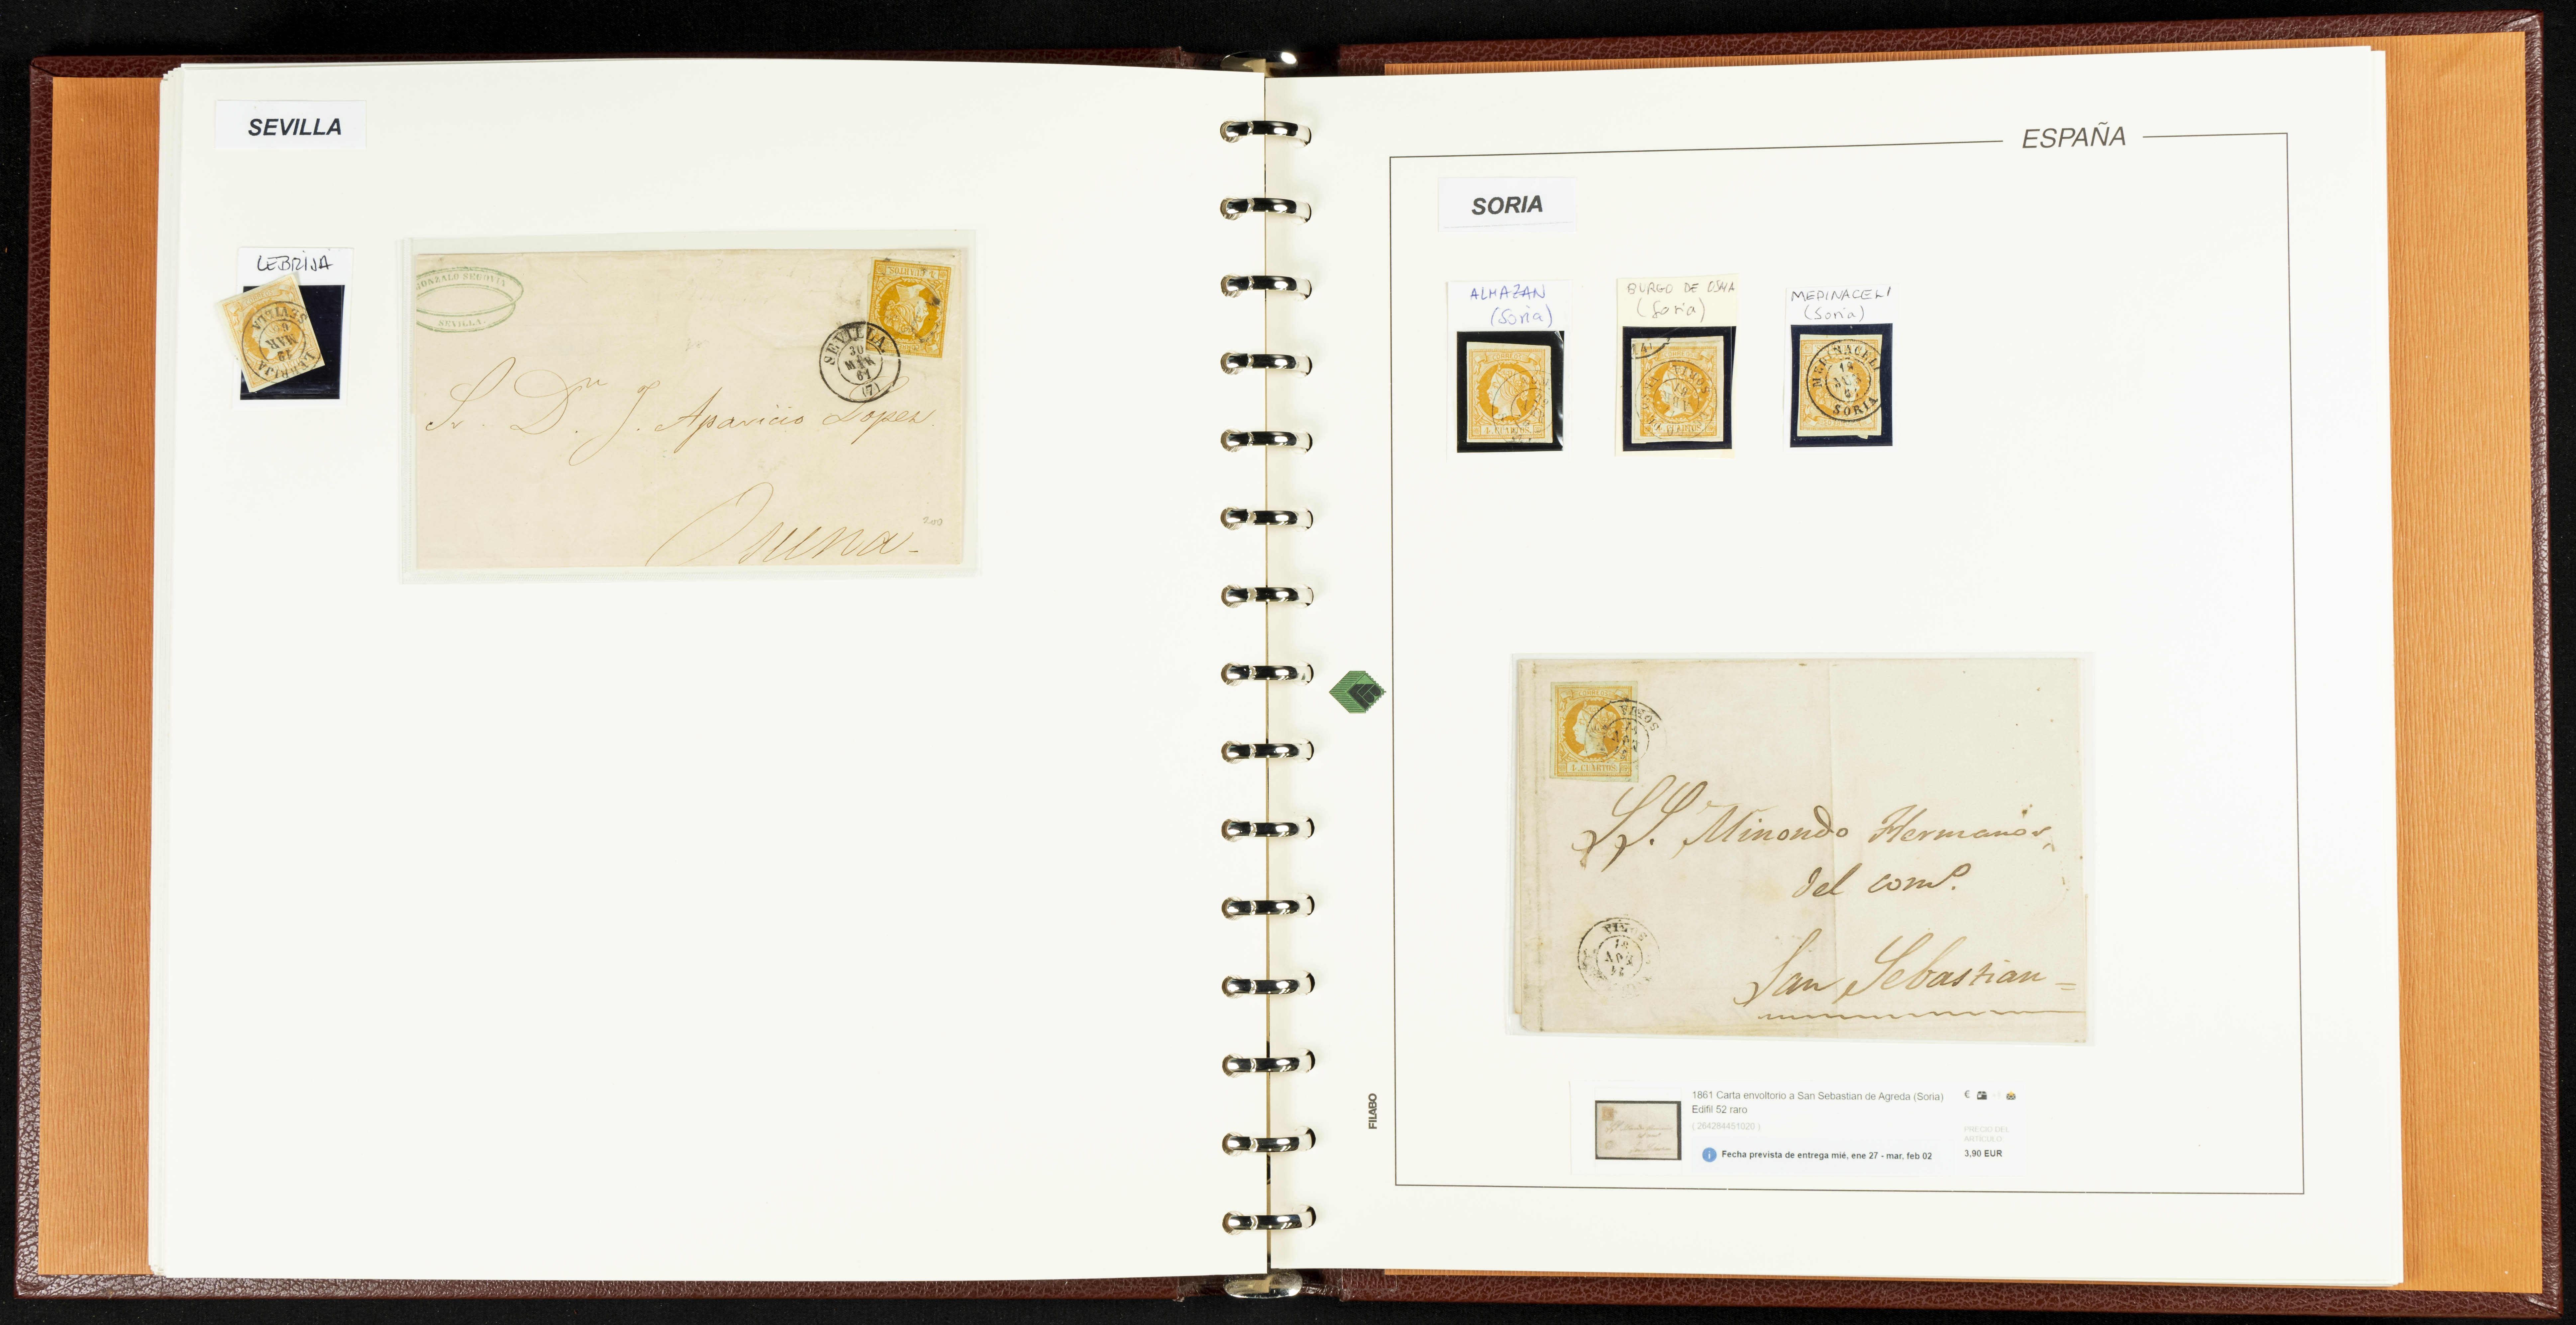 SEVILLA
LEBRIJA
SEVILLA
19
MAR
LEBRIJA
GONZALO SEGOVIA
SEVILLA.
SEVILLA
30
MAR
61
(7)
Sr. Dn. J. Aparicio Lopez.
Osuna-
200
ESPAÑA
SORIA
ALMAZAN
(Soria)
BURGO DE OSMA
(Soria)
MEDINACELI
(Soria)
4 CUARTOS
MEDINACELI
SORIA
SORIA
4 CUARTOS
SS. Minondo Hermanos,
del como.
San Sebastian=
FILABO
1861 Carta envoltorio a San Sebastian de Agreda (Soria)
Edifil 52 raro
( 264284451020 )
Fecha prevista de entrega mié, ene 27 - mar, feb 02
€
PRECIO DEL
ARTÍCULO
3,90 EUR